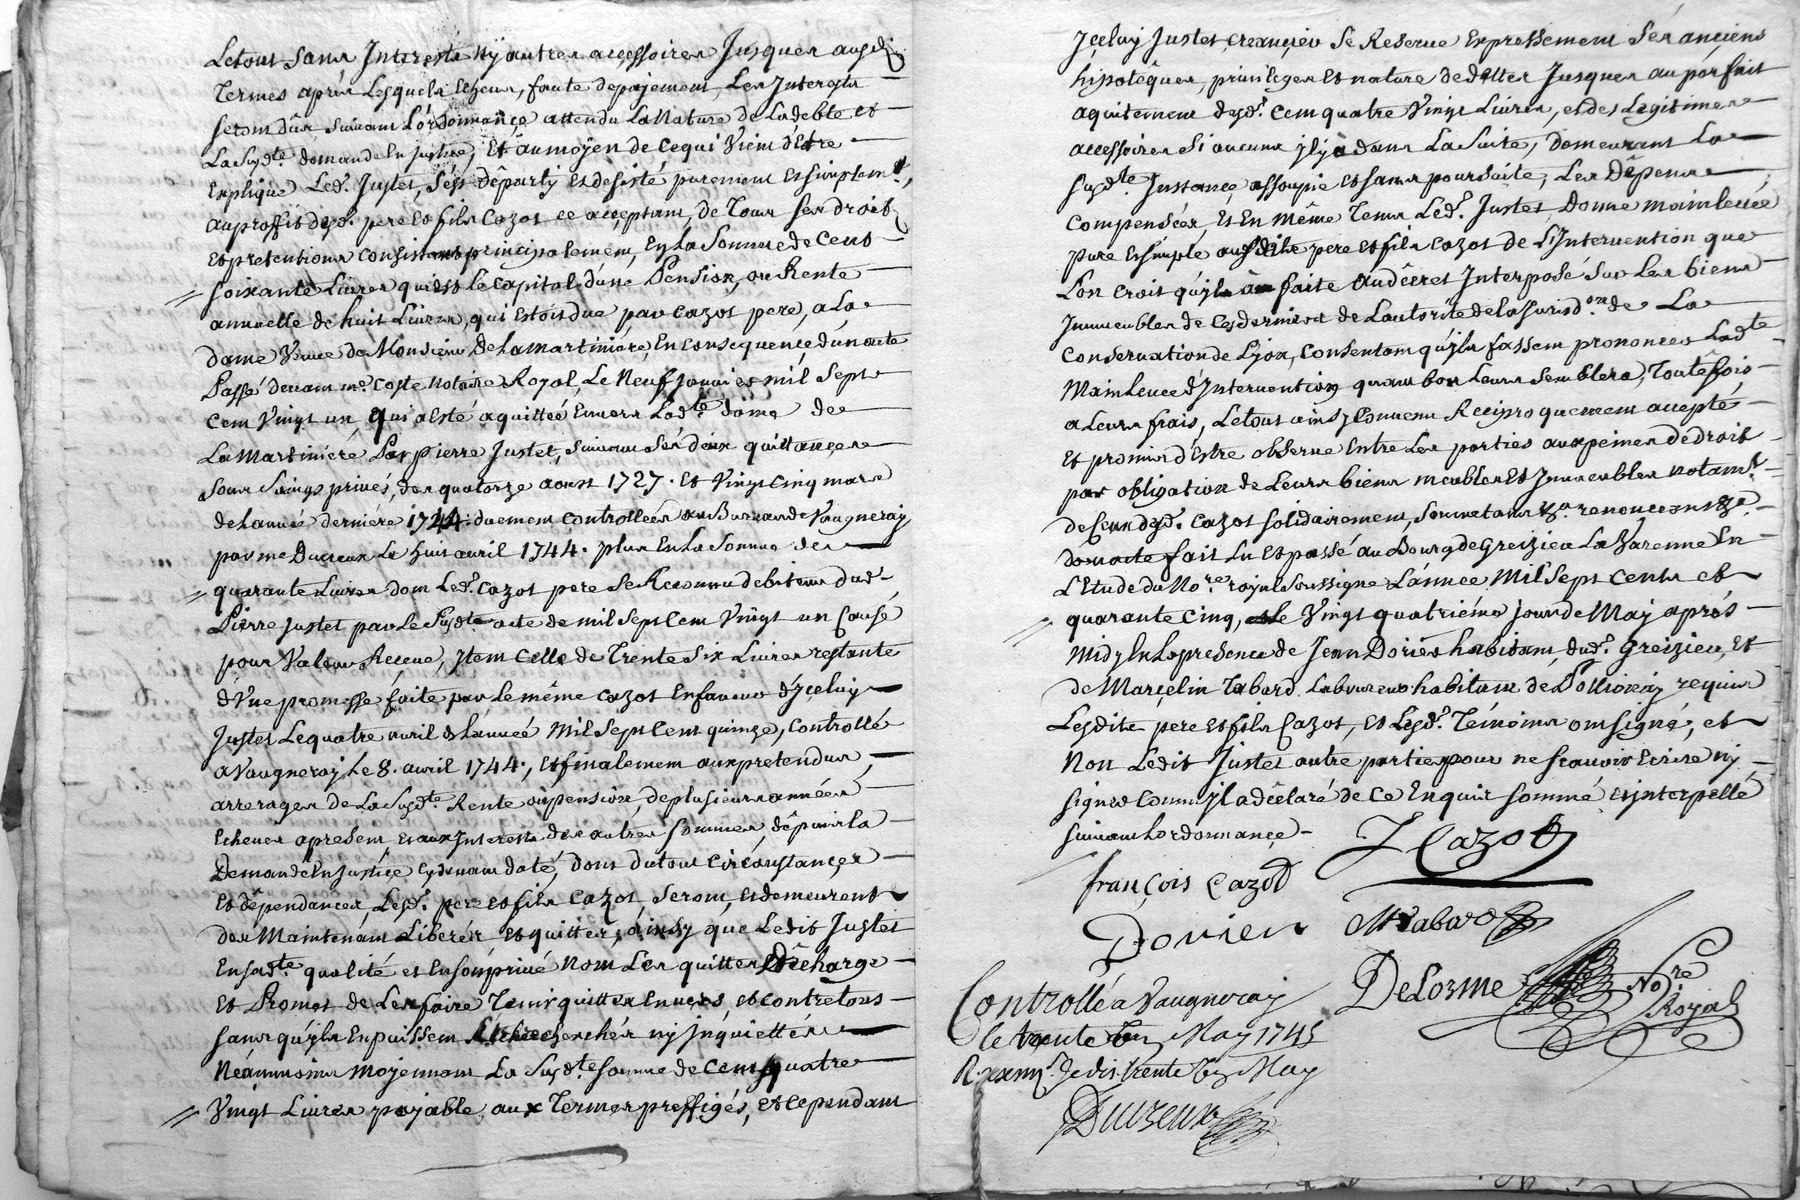 Letout sans Interests ny autres accessoires Jusques ausdi
Termes aprés Lesquels Echeus, faute depaiement, Les Interests
seront dûs suivant L'ordonnance attendu La Nature de Ladebte et
La susdte demande En Justice, Et aumoyen de Cequi Vient d'Etre
Expliqué Led. Justet, s'est départy et desisté purement Et simplemt,
auproffit desd. pere et fils Cazot ce acceptant, de Tous ses droits
Et pretentions Consistants principalement, En la Somme de Cent
soixante Livres qui est le Capital d'une Pension, ou Rente
annuelle de huit Livres, qui Estoit due par Cazot pere, a La
dame Veuve de Monsieur De Lamartiniere, En Consequence d'un acte
Passé devant me Coste Notaire Royal, Le Neuf Janvier mil Sept
Cent Vingt un, qui a Esté aquitteé Envers Ladte dame de
La Martiniére Par Pierre Justet, suivant ses deux quittances
sous seings privés, des quatorze aoust 1727. Et Vingt Cinq mars
de Lanneé derniere 1744. duement Controlleés au Bureau de Vaugneray
par me Ducreux Le huit avril 1744. plus En La Somme de
quarante Livres dont Led. Cazot pere se Reconnu debiteur dud.
Pierre Justet par Le Susdte acte de mil Sept Cent Vingt un Causé
pour Valeur Receue, Item Celle de Trente Six Livres restante
d'Une promesse faite par Le même Cazot En faveur d'Yceluy
Justet Le quatre avril de L'anneé Mil Sept Cent quinze, Controllé
a Vaugneray Le 8. avril 1744., Et finalement aux pretendus
arrerages de La Susdte Rente ou pension, de plusieurs anneés
Echeues apresent, Et aux Interests des autres sommes, dépuis la
Demande En Justice Cy devant daté, dont du tout Circonstances
Et dépendances, Lesd. pere et fils Cazot, seront, et demeurent
dez Maintenant Liberés et quittes, ainsy que Ledit Justet
En sadte qualité et En son privé Nom Les quitte Et Décharge
Et Promet de Les faire Tenir quittes Envers, et contre tous
sans qu'yls En puissent Etre Recherchés ny Inquiettés
Néanmoins moyennant La Susdte somme de Cent quatre
Vingt Livres payable aux Termes preffigés, Et Cependant
Yceluy Justet Creancier Se Reserve Expressement Ses anciens
hipotêques, privileges Et nature de dettes Jusques au parfait
aquitement desd. Cent quatre Vingt Livres, et des Legitimes
accessoires Si aucuns ylya dans La Suite, Demeurant La
susdte Instance assoupie Et sans poursuite, Les Dêpens
Compensées, Et En même Tems Led. Justet Donne mainleveé
pure Et simple ausdits pere et fils Cazot de L'Intervention que
L'on croit qu'yl a faite au décret Interposé sur Les biens
Immeubles de Ces derniers de Lautorité de la Jurisdon de La
Conservation de Lyon, Consentant qu'yls fassent prononcer Ladte
Mainleveé d'Intervention quand bon Leurs Semblera, Toutefois
a Leurs frais, Letout ainsy Convenu Reciproquement accepté
Et promis d'Estre observé Entre Les parties aux peines de droit
par obligation de Leurs biens meubles Et Immeubles notamt
de Ceux desd. Cazot solidairement, Soumettans &a. renonceans &a.
dont acte fait Lu Et passé au Bourg de Greizieu La Varenne En
L'Etude du Nore royal Soussigné L'anneé Mil Sept Cents et
quarante Cinq, Le Vingt quatriéme jour de May aprés
Midy En La presence de Jean Dorier habitant dud. Greizieu, Et
de Marcelin Tabard Laboureur habitant de Pollionay requis
Lesdits pere et fils Cazot, et Lesd. Témoins ont signé, et
Non Ledit Justet autre partie pour ne scavoir Ecrire ny
signer Comm'yl a déclaré de Ce Enquis sommé et interpellé
suivant Lordonnance
J Cazot
françois Cazot
Dorier M Tabard
DeLorme Nore Royal
Controllé a Vaugneray
le trente un May 1745
Ducreux